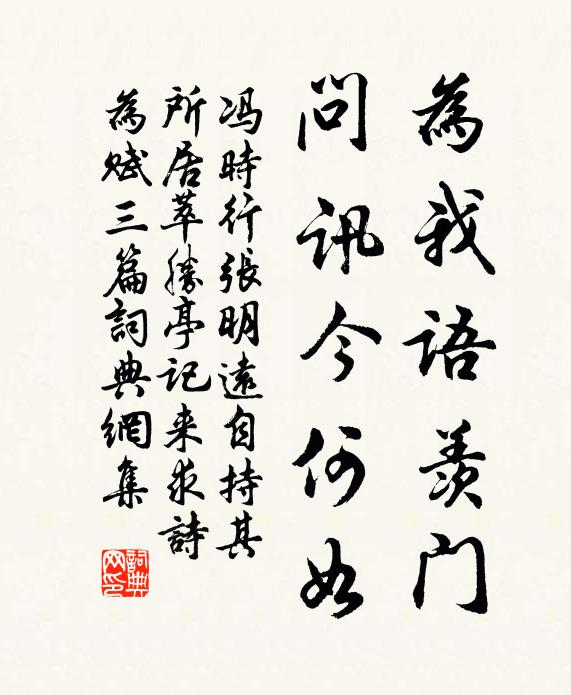 為我語羨门
問訊今何如
冯時行張明遠自持其
所居萃勝亭记来求詩
為赋三篇詞典網集
詞典网印